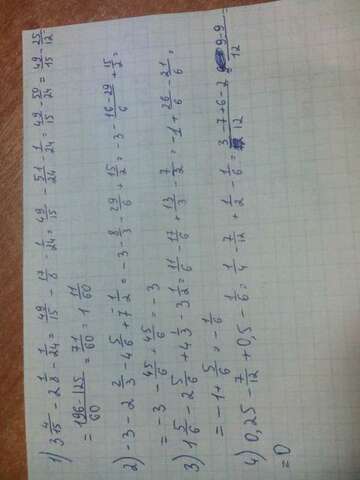 1) 3 4/15 - 2 1/8 - 1/24 = 49/15 - 17/8 - 1/24 = 49/15 - 51/24 - 1/24 = 49/15 - 50/24 = 49/15 - 25/12
= (196-125)/60 = 71/60 = 1 11/60
2) -3 - 2 2/3 - 4 5/6 + 7 1/2 = -3 - 8/3 - 29/6 + 15/2 = -3 - (16-29)/6 + 15/2 =
= -3 - 45/6 + 45/6 = -3
3) 1 5/6 - 2 5/6 + 4 1/3 - 3 1/2 = 11/6 - 17/6 + 13/3 - 7/2 = -1 + 26/6 - 21/6 =
= -1 + 5/6 = -1/6
4) 0,25 - 7/12 + 0,5 - 1/6 = 1/4 - 7/12 + 1/2 - 1/6 = (3-7+6-2)/12 = (9-9)/12
=0